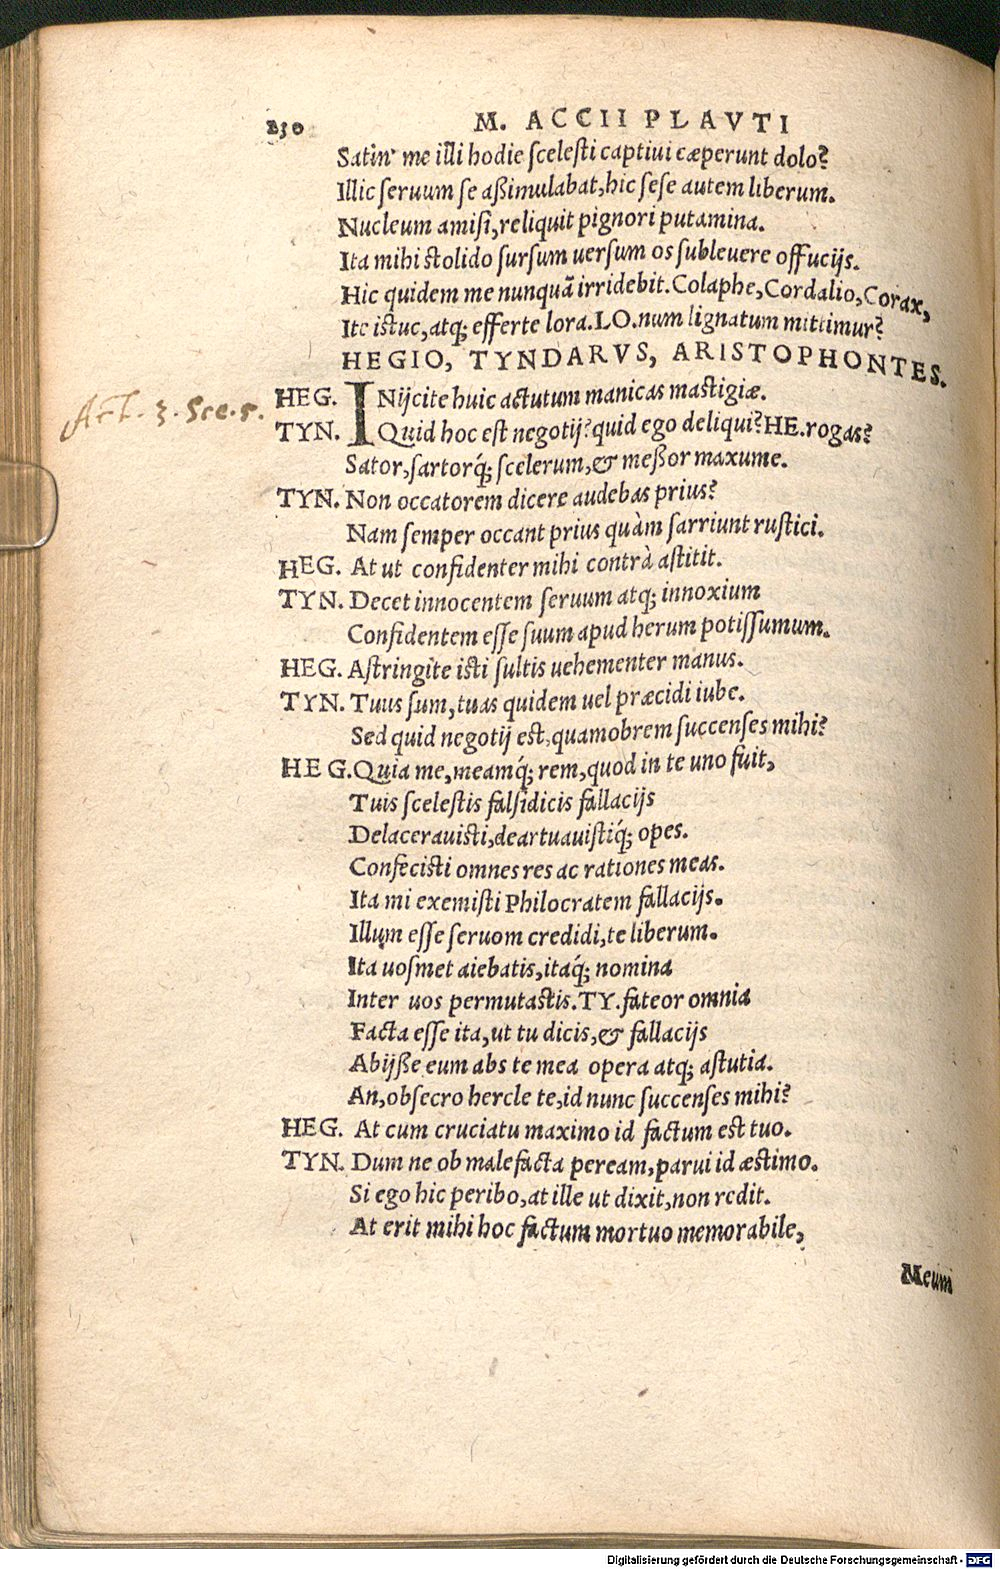 230 M. ACCII PLAVTI
Satin' me illi hodie scelesti captiui cæperunt dolo?
Illic seruum se aßimulabat, hic sese autem liberum.
Nucleum amisi, reliquit pignori putamina.
Ita mihi stolido sursum uersum os subleuere offucijs.
Hic quidem me nunquã irridebit. Colaphe, Cordalio, Corax,
Ite istuc, atq; efferte lora. LO. num lignatum mittimur?
HEGIO, TYNDARVS, ARISTOPHONTES.
Act. 3. Sce. 5.
HEG. INijcite huic actutum manicas mastigiæ.
TYN. Quid hoc est negotij? quid ego deliqui? HE. rogas?
Sator, sartorq́; scelerum, & meßor maxume.
TYN. Non occatorem dicere audebas prius?
Nam semper occant prius quàm sarriunt rustici.
HEG. At ut confidenter mihi contrà astitit.
TYN. Decet innocentem seruum atq; innoxium
Confidentem esse suum apud herum potissumum.
HEG. Astringite isti sultis uehementer manus.
TYN. Tuus sum, tuas quidem uel præcidi iube.
Sed quid negotij est, quamobrem succenses mihi?
HEG. Quia me, meamq́; rem, quod in te uno fuit,
Tuis scelestis falsidicis fallacijs
Delacerauisti, deartuauistiq́; opes.
Confecisti omnes res ac rationes meas.
Ita mi exemisti Philocratem fallacijs.
Illum esse seruom credidi, te liberum.
Ita uosmet aiebatis, itaq́; nomina
Inter uos permutastis. TY. fateor omnia
Facta esse ita, ut tu dicis, & fallacijs
Abijße eum abs te mea opera atq; astutia.
An, obsecro hercle te, id nunc succenses mihi?
HEG. At cum cruciatu maximo id factum est tuo.
TYN. Dum ne ob malefacta peream, parui id æstimo.
Si ego hic peribo, at ille ut dixit, non redit.
At erit mihi hoc factum mortuo memorabile,
Meum
Digitalisierung gefördert durch die Deutsche Forschungsgemeinschaft - DFG